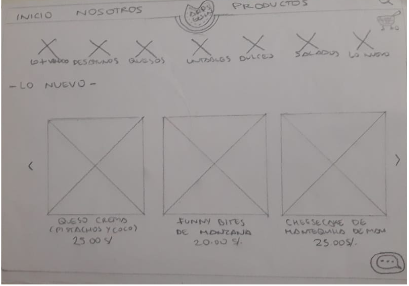 INICIO NOSOTROS PRODUCTOS
QUESOS UNTABLES DULCES SALADOS LO NUEVO
- LO NUEVO -
QUESO CREMA
(PISTACHOS Y COCO)
25.00 S/.
FUNNY BITES
DE MANZANA
20.00 S/.
CHEESECAKE DE
MANTEQUILLA DE MANI
25.00 S/.